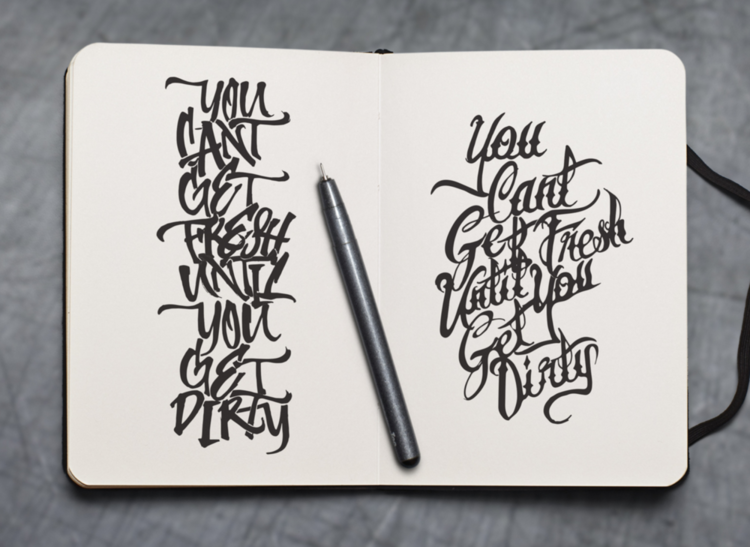 YOU
CANT
GET
FRESH
UNTIL
YOU
GET
DIRTY
You
Cant
Get Fresh
Until You
Get
Dirty